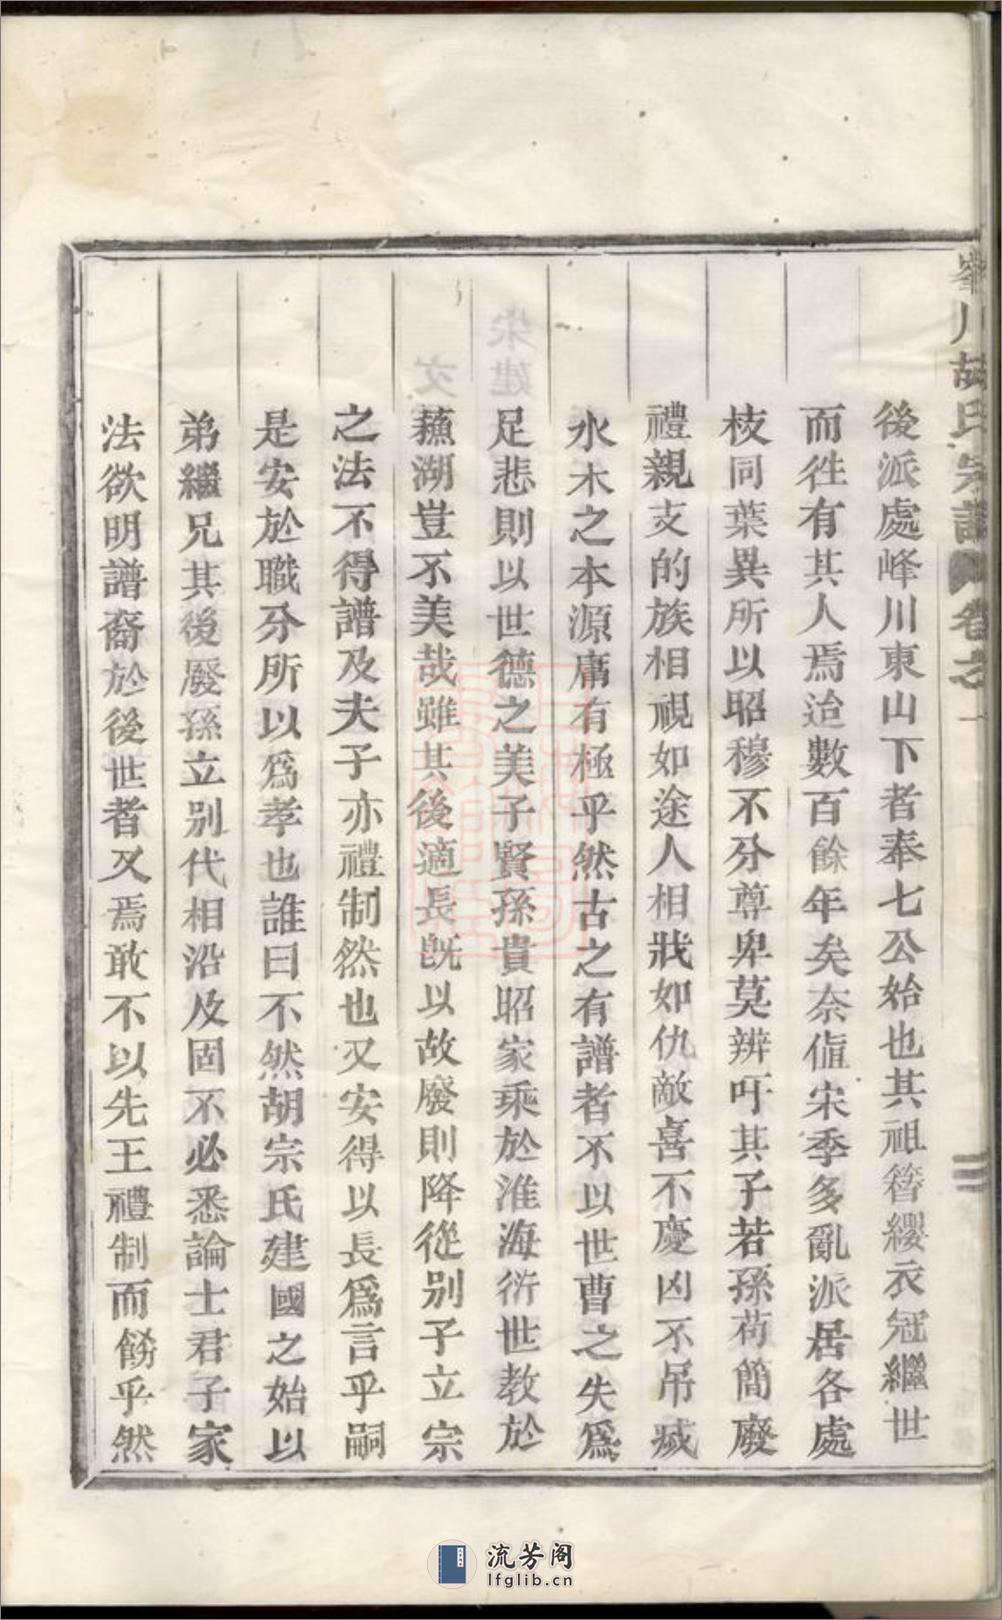 峯川胡氏宗譜 卷之一
後派處峰川東山下者奉七公始也其祖簪纓衣冠繼世
而徃有其人焉迨數百餘年矣奈值宋季多亂派居各處
枝同葉異所以昭穆不分尊卑莫辨吁其子若孫苟簡廢
禮親支的族相視如途人相戕如仇敵喜不慶凶不吊臧
水木之本源庸有極乎然古之有譜者不以世曹之失爲
足悲則以世德之美子賢孫貴昭家乘於淮海衍世教於
蘓湖豈不美哉雖其後適長旣以故廢則降從别子立宗
之法不得譜及夫子亦禮制然也又安得以長爲言乎嗣
是安於職分所以爲孝也誰曰不然胡宗氏建國之始以
弟繼兄其後廢孫立别代相沿及固不必悉論士君子家
法欲明譜裔於後世者又焉敢不以先王禮制而餝乎然
流芳阁
lfglib.cn